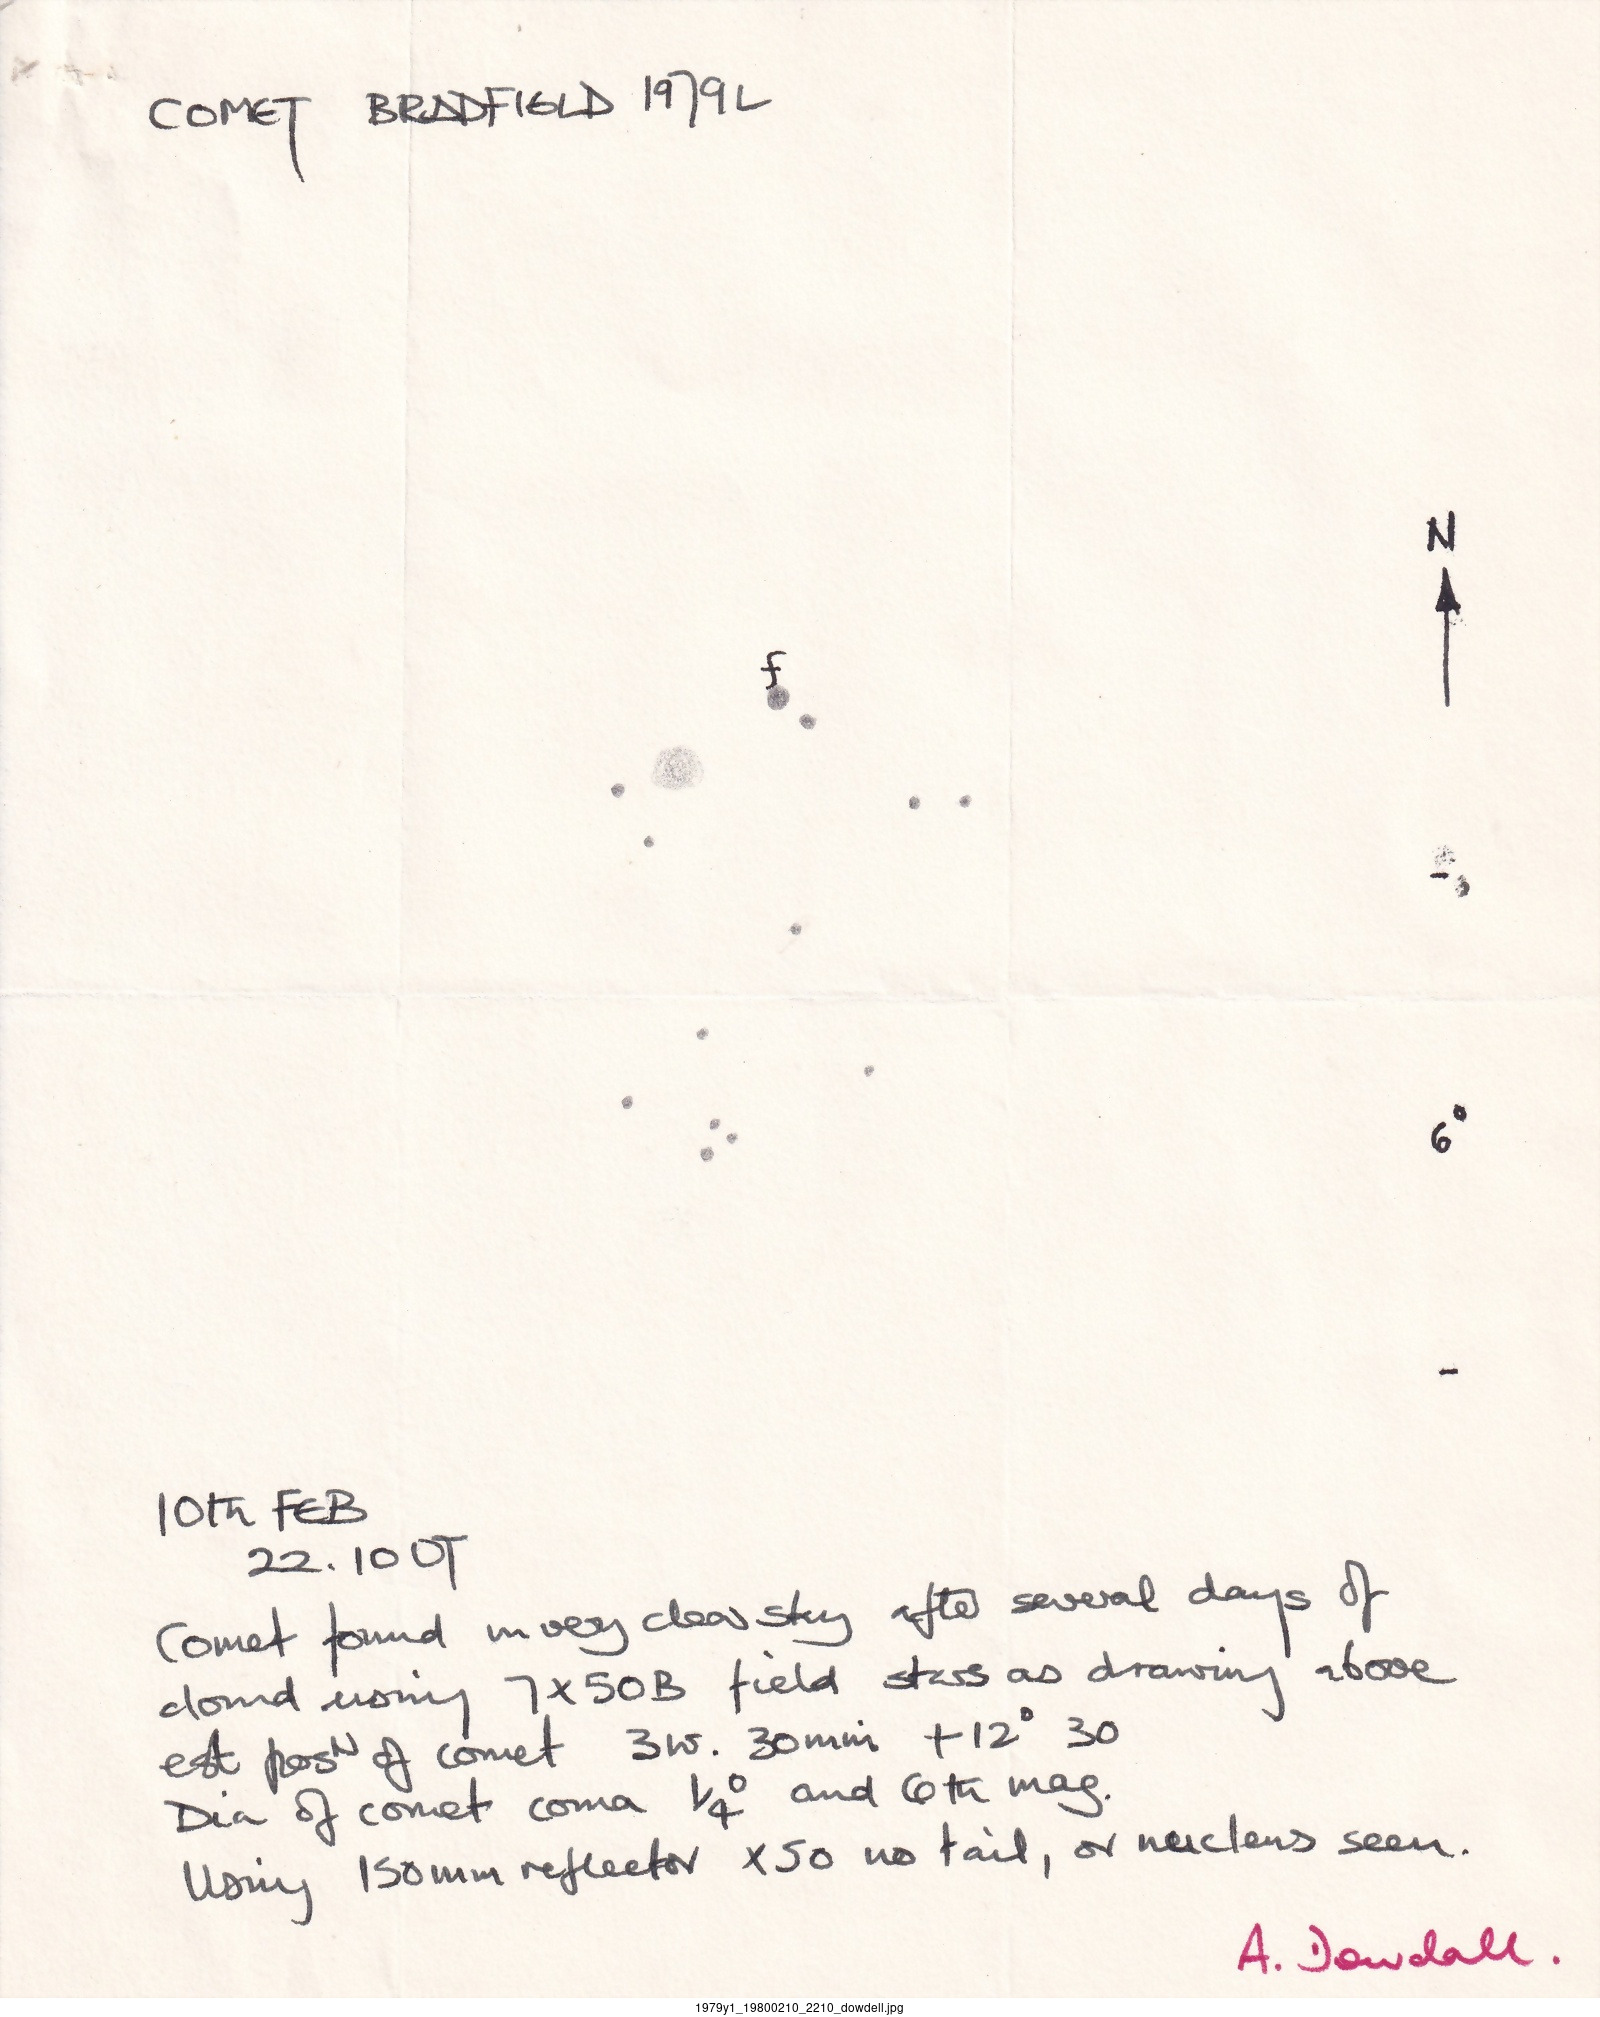 COMET BRADFIELD 1979L
N
f
6°
10th FEB
22.10 UT
Comet found in very clear sky after several days of
cloud using 7x50B field stars as drawing above
est posN of comet 30min +12° 30
Dia of comet coma 1/4° and 6th mag.
Using 150mm reflector x50 no tail, or nucleus seen.
A. Dowdall.
1979y1_19800210_2210_dowdell.jpg